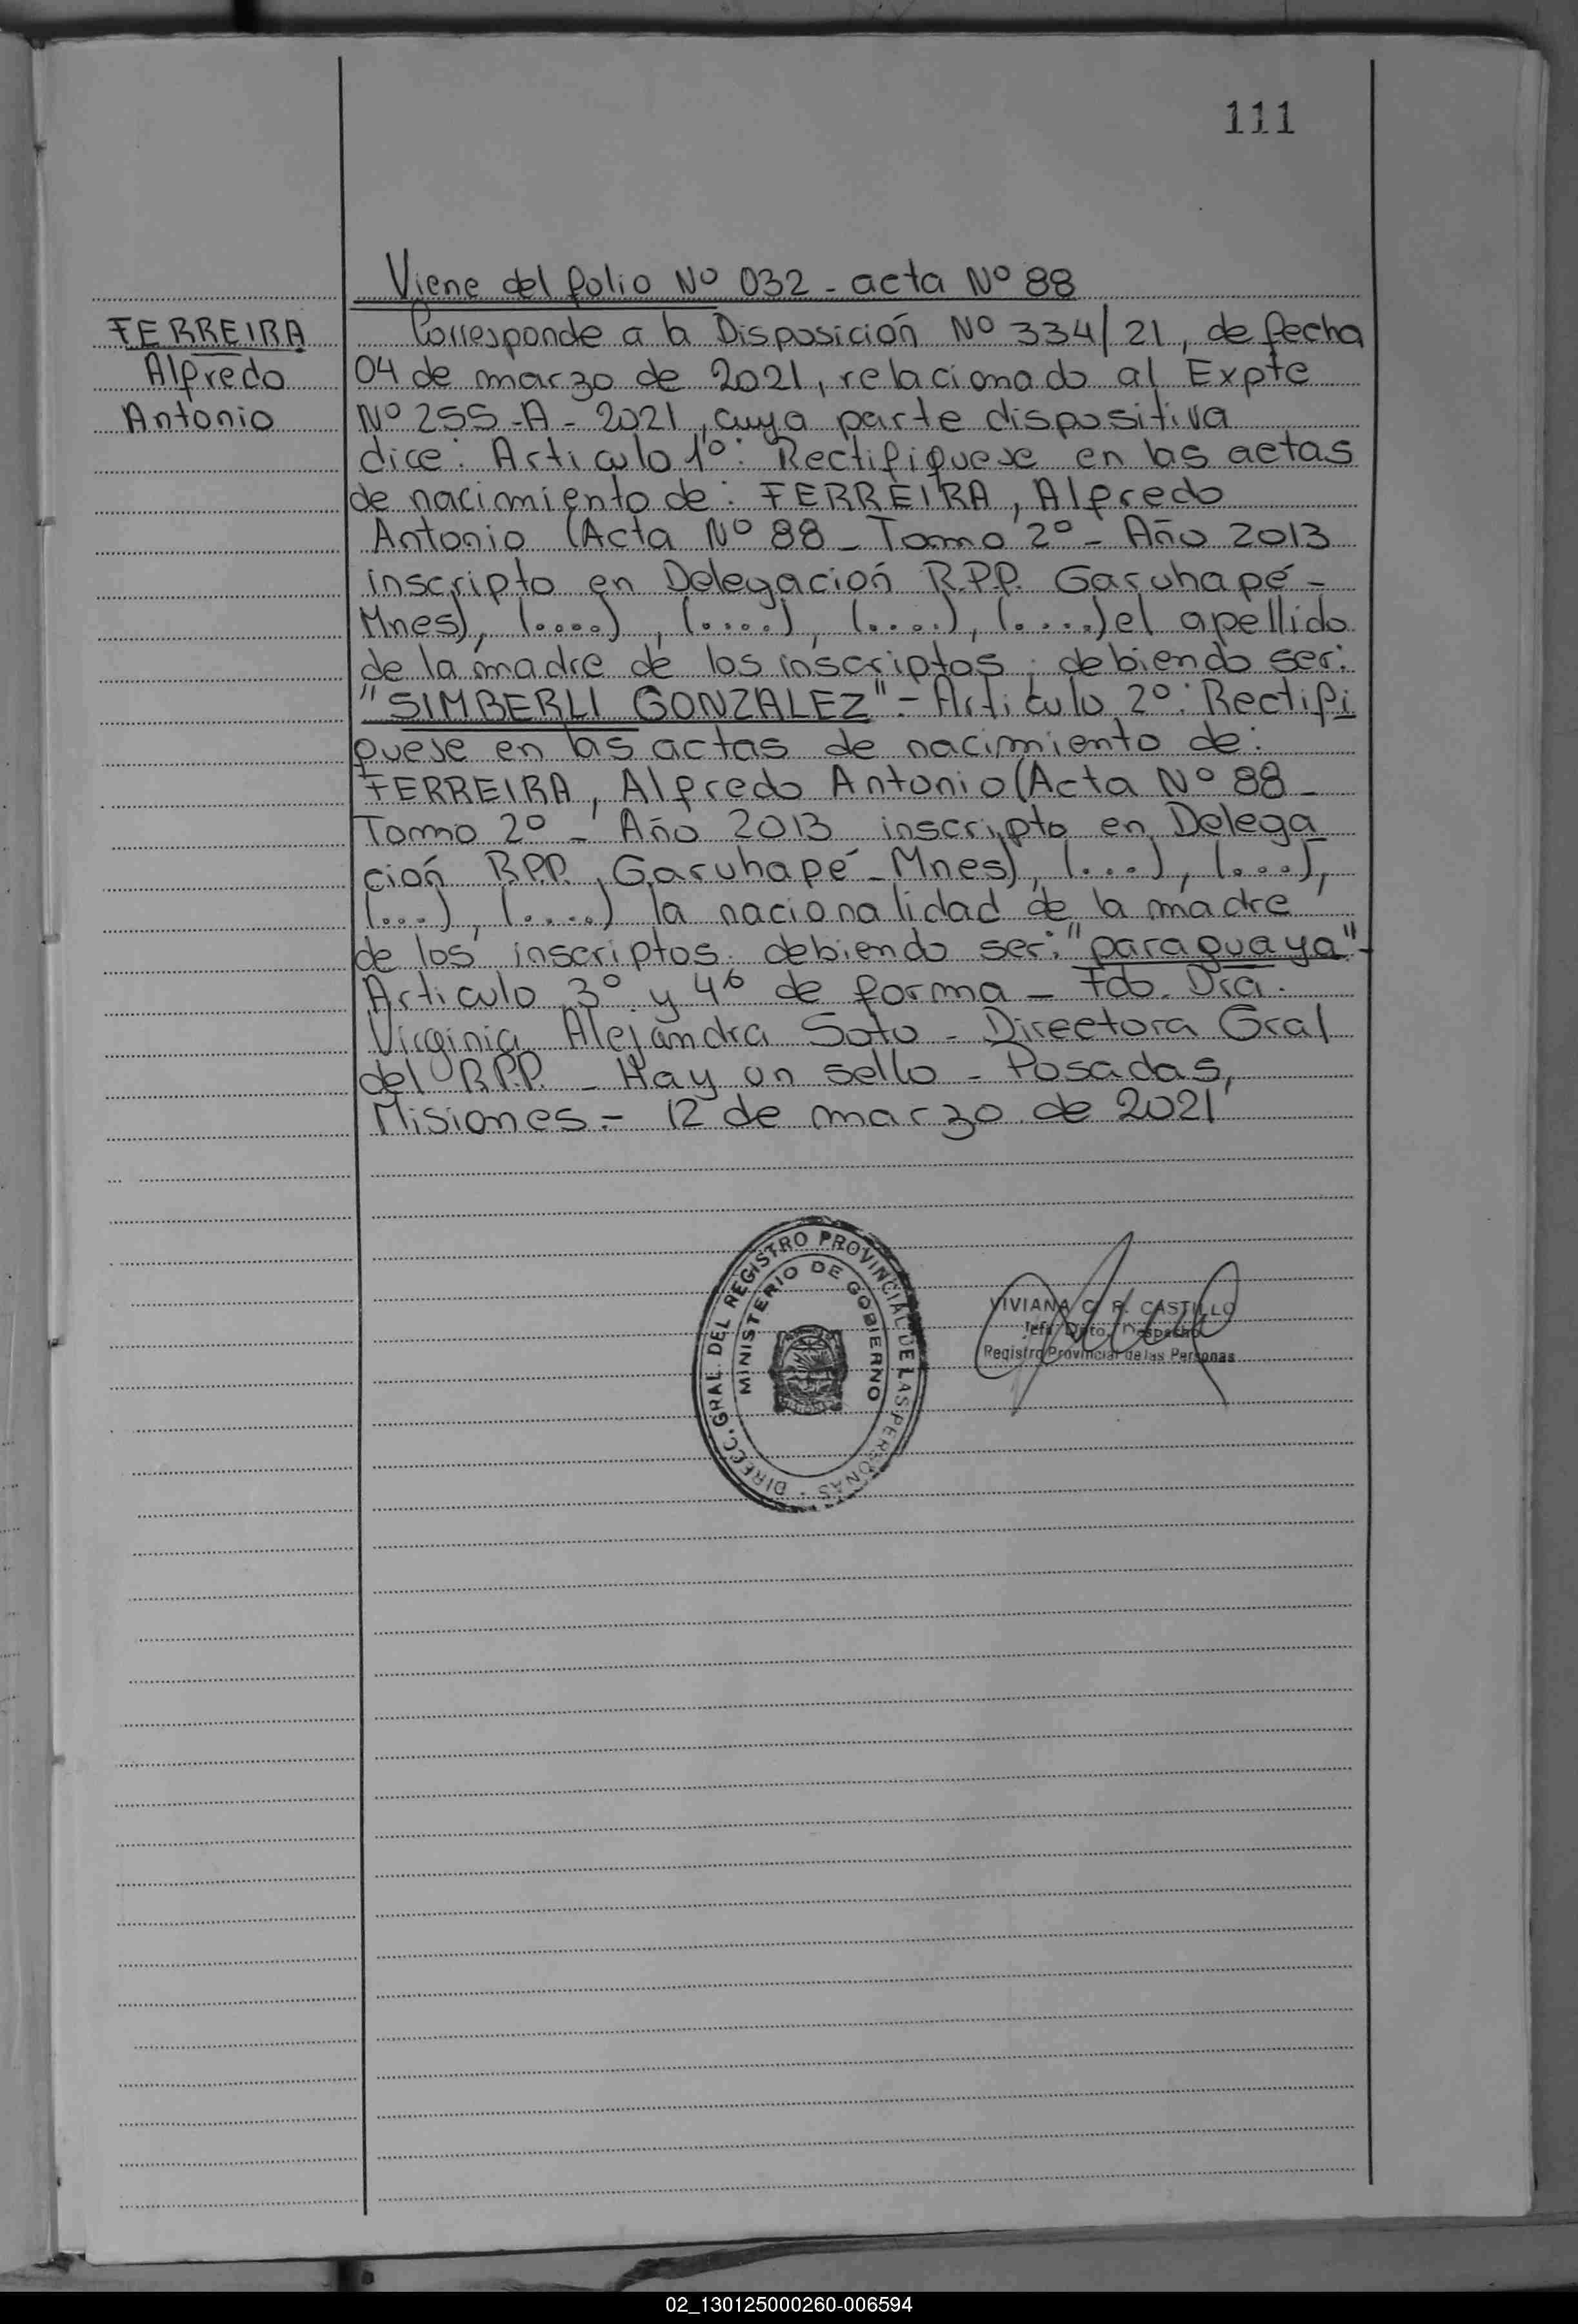 111
Viene del folio Nº 032 - acta Nº 88
FERREIRA
Alfredo
Antonio
Corresponde a la Disposición Nº 334/21, de fecha
04 de marzo de 2021, relacionado al Expte
Nº 255-A-2021, cuya parte dispositiva
dice: Articulo 1º: Rectifiquese en las actas
de nacimiento de: FERREIRA, Alfredo
Antonio (Acta Nº 88 - Tomo 2º - Año 2013
inscripto en Delegación R.P.P. Garuhapé -
Mnes), (.....), (....), (....), (.....) el apellido
de la madre de los inscriptos, debiendo ser:
"SIMBERLI GONZALEZ" - Articulo 2º: Rectifi
quese en las actas de nacimiento de:
FERREIRA, Alfredo Antonio (Acta Nº 88 -
Tomo 2º - Año 2013 inscripto en Delega
ción R.P.P. Garuhapé - Mnes), (....), (....),
(....), (.....) la nacionalidad de la madre
de los inscriptos. debiendo ser: "paraguaya" -
Articulo 3º y 4º de forma - Fdo. Dra.
Virginia Alejandra Soto - Directora Gral
del R.P.P. - Hay un sello - Posadas,
Misiones. - 12 de marzo de 2021
DIRECC. GRAL. DEL REGISTRO PROVINCIAL DE LAS PERSONAS
MINISTERIO DE GOBIERNO
VIVIANA C. R. CASTILLO
Jefa Dpto. Despacho
Registro Provincial de las Personas
02_130125000260-006594